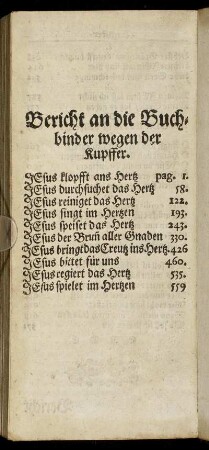 Bericht an die Buch⸗
binder wegen der
Kupffer.
JEsus klopfft ans Hertz pag. 1.
JEsus durchsuchet das Hertz 58.
JEsus reiniget das Hertz 122.
JEsus singt im Hertzen 193.
JEsus speiset das Hertz 243.
JEsus der Brun̄ aller Gnaden 330.
JEsus bringt das Creutz ins Hertz. 426
JEsus bittet für uns 460.
JEsus regiert das Hertz 535.
JEsus spielet im Hertzen 559